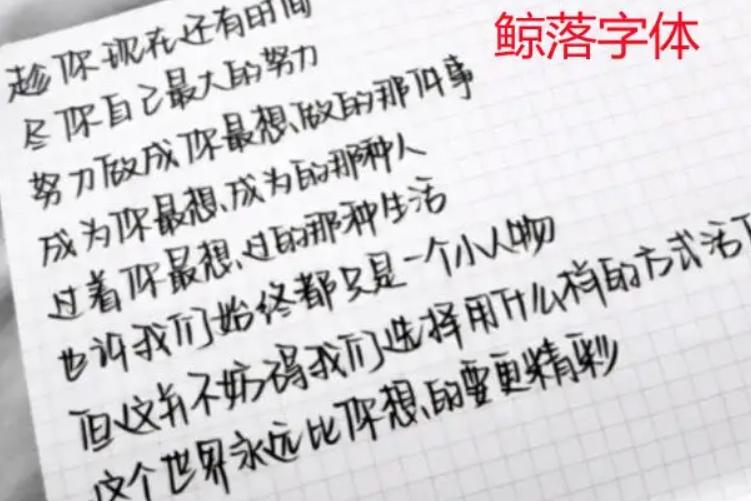 鲸落字体
趁你现在还有时间
尽你自己最大的努力
努力做成你最想做的那件事
成为你最想成为的那种人
过着你最想过的那种生活
也许我们始终都只是一个小人物
但这并不妨碍我们选择用什么样的方式活下
这个世界永远比你想的要更精彩